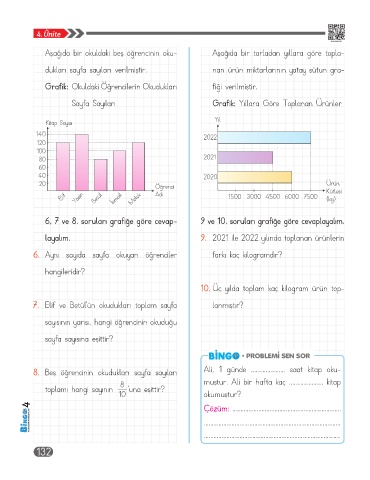 4. Ünite
Aşağıda bir okuldaki beş öğrencinin oku-
dukları sayfa sayıları verilmiştir.
Grafik: Okuldaki Öğrencilerin Okudukları
Sayfa Sayıları
Kitap Sayısı
140
120
100
80
60
40
20
Öğrenci
Adı
Elif
6, 7 ve 8. soruları grafiğe göre cevap-
layalım.
6. Aynı sayıda sayfa okuyan öğrenciler
hangileridir?
7. Elif ve Betül'ün okudukları toplam sayfa
sayısının yarısı, hangi öğrencinin okuduğu
sayfa sayısına eşittir?
8. Beş öğrencinin okudukları sayfa sayıları
toplamı hangi sayının 8/10 'una eşittir?
Aşağıda bir tarladan yıllara göre topla-
nan ürün miktarlarının yatay sütun gra-
fiği verilmiştir.
Grafik: Yıllara Göre Toplanan Ürünler
Yıl
2022
2021
2020
1500 3000 4500 6000 7500
Ürün
Kütlesi
(kg)
9 ve 10. soruları grafiğe göre cevaplayalım.
9. 2021 ile 2022 yılında toplanan ürünlerin
farkı kaç kilogramdır?
10. Üç yılda toplam kaç kilogram ürün top-
lanmıştır?
BİNGO • PROBLEMİ SEN SOR
Ali, 1 günde .................. saat kitap oku-
muştur. Ali bir hafta kaç .................. kitap
okumuştur?
Çözüm: ..................
BİNGO 4
132